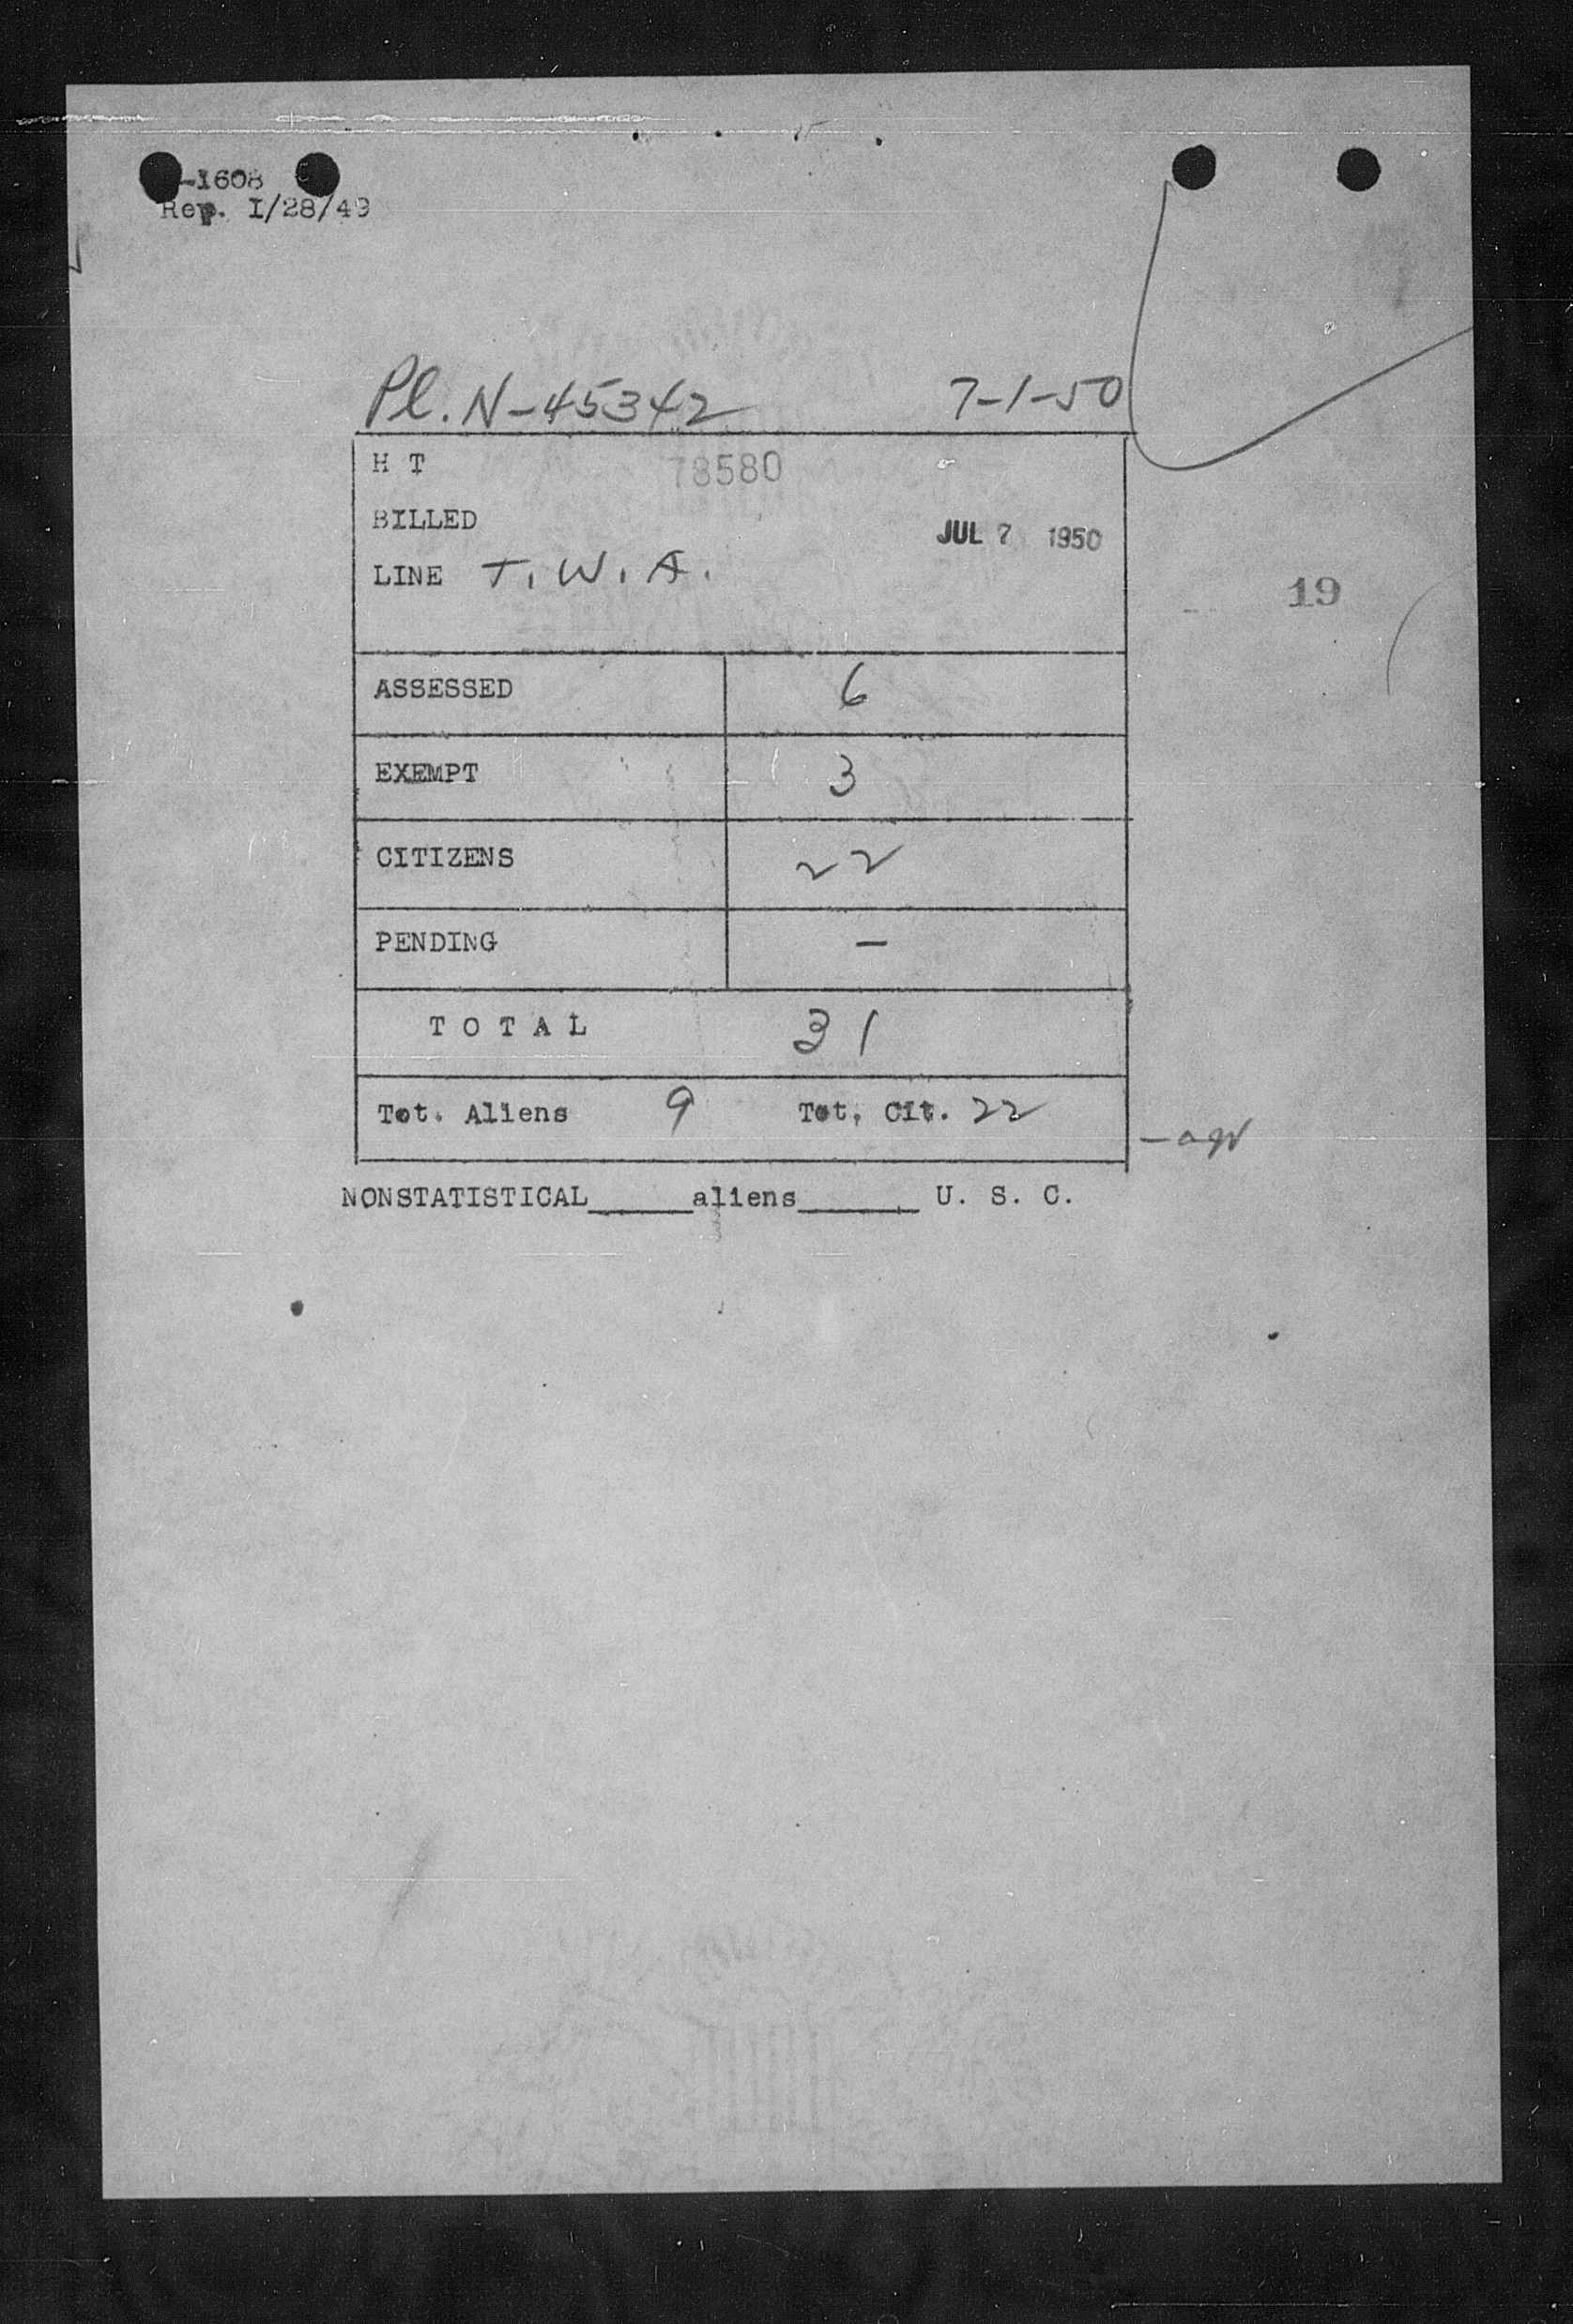 -1608
Rep. 1/28/49
Pl. N-45342 7-1-50
H T 78580
BILLED JUL 7 1950
LINE T. W. A.
19
ASSESSED 6
EXEMPT 3
CITIZENS 22
PENDING —
TOTAL 31
Tot. Aliens 9 Tot. Cit. 22
NONSTATISTICAL_____aliens______ U. S. C.